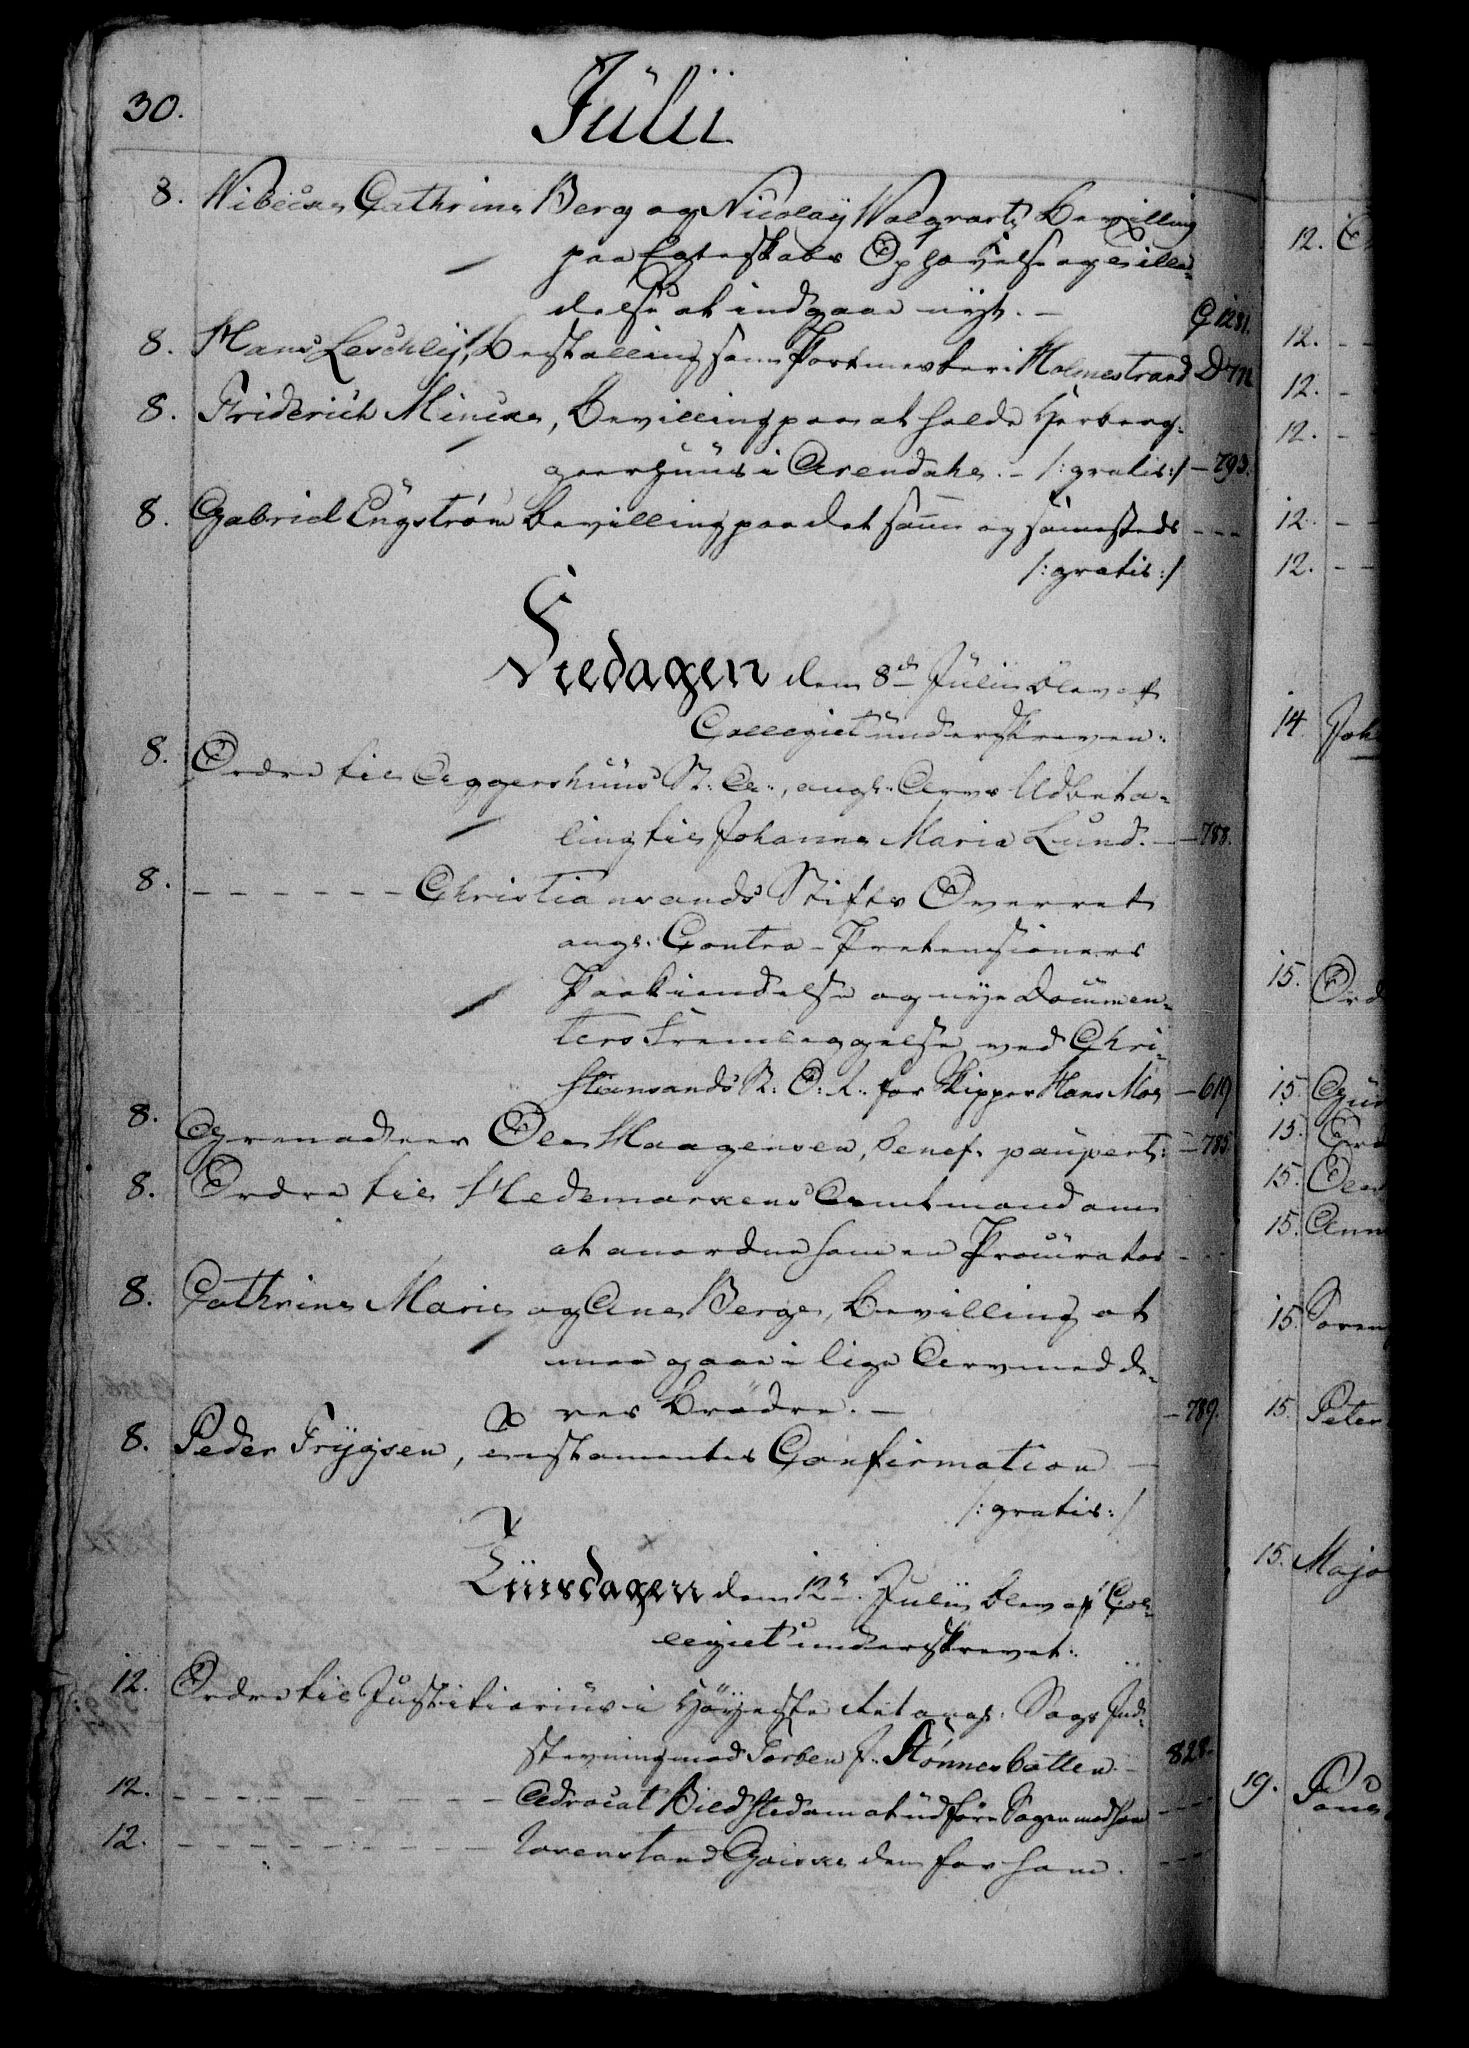 30.
Julii
8. Wibecke Cathrine Berg og Nicolaÿ Walgvarts Bevilling
paa Egteskabs Ophævelse og Tilla-
delse at indgaae nyt. - G 1281.
8. Hans Leschlÿ, Bestalling som Postmester i Holmestrand D 712
8. Friderich Mincke, Bevilling paa at holde Herberg-
geerhuus i Arendahl. - /:gratis:/ - 793.
8. Gabriel Engstrøm Bevilling paa det samme og sammesteds ---
/:gratis:/
Fredagen den 8de Julii blev af
Collegiet underskreven:
8. Ordre til Aggershuus St: A:, ang: Arvs Udbeta-
ling til Johanne Maria Lund. - - 788.
8. - - - - - - Christiansands Stifts Overret
ang: Contra-Prætensioners
Paakiendelse og nye Documen-
ters Fremlæggelse ved Chri-
stiansands St: O: R: for Skipper Hans Moe - 619
8. Grenadeer Ole Haagensen, benef: paupert: - 785
8. Ordre til Hedemarkens Amtmand om
at anordne ham en Procurator - - -
8. Cathrine Marie og Ane Berge, Bevilling at
maa gaae i lige Arv med de-
res Brødre. - - 789.
8. Peder Trÿgsen, Testamentes Confirmation -
/:gratis:/
Tiirsdagen den 12te Julii blev af Col-
legiet underskrevet:
12. Ordre til Justitiarius i Høÿeste Ret ang: Sags Ind-
stevning mod Torben J. Stønnesbatten - 828.
12. - - - - - - - - Advocat Bildsted om at udføre Sagen mod ham ---
12. - - - - - - - - den for ham. ---
12.
12. - -
12. -
12. -
12. - -
12. - -
14. Joh
15. Ord
15. Gun
15. Ord
15. Ole
15. Ann
15. Søren
15. Peter
15. Majo
19.